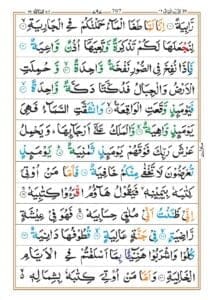 797
رَّابِيَةً ۝ اِنَّا لَمَّا طَغَا الْمَآءُ حَمَلْنٰكُمْ فِي الْجَارِيَةِ ۝
لِنَجْعَلَهَا لَكُمْ تَذْكِرَةً وَّتَعِيَهَآ اُذُنٌ وَّاعِيَةٌ ۝
فَاِذَا نُفِخَ فِي الصُّوْرِ نَفْخَةٌ وَّاحِدَةٌ ۝ وَّحُمِلَتِ
الْاَرْضُ وَالْجِبَالُ فَدُكَّتَا دَكَّةً وَّاحِدَةً ۝ فَيَوْمَئِذٍ
وَّقَعَتِ الْوَاقِعَةُ ۝ وَانْشَقَّتِ السَّمَآءُ فَهِيَ
يَوْمَئِذٍ وَّاهِيَةٌ ۝ وَّالْمَلَكُ عَلٰٓى اَرْجَآئِهَا ؕ وَيَحْمِلُ
عَرْشَ رَبِّكَ فَوْقَهُمْ يَوْمَئِذٍ ثَمٰنِيَةٌ ۝ يَوْمَئِذٍ
تُعْرَضُوْنَ لَا تَخْفٰى مِنْكُمْ خَافِيَةٌ ۝ فَاَمَّا مَنْ اُوْتِيَ
كِتٰبَهٗ بِيَمِيْنِهٖ فَيَقُوْلُ هَآؤُمُ اقْرَءُوْا كِتٰبِيَهْ ۝
اِنِّيْ ظَنَنْتُ اَنِّيْ مُلٰقٍ حِسَابِيَهْ ۝ فَهُوَ فِيْ عِيْشَةٍ
رَّاضِيَةٍ ۝ فِيْ جَنَّةٍ عَالِيَةٍ ۝ قُطُوْفُهَا دَانِيَةٌ ۝
كُلُوْا وَاشْرَبُوْا هَنِيْٓئًاۢ بِمَآ اَسْلَفْتُمْ فِي الْاَيَّامِ
الْخَالِيَةِ ۝ وَاَمَّا مَنْ اُوْتِيَ كِتٰبَهٗ بِشِمَالِهٖ